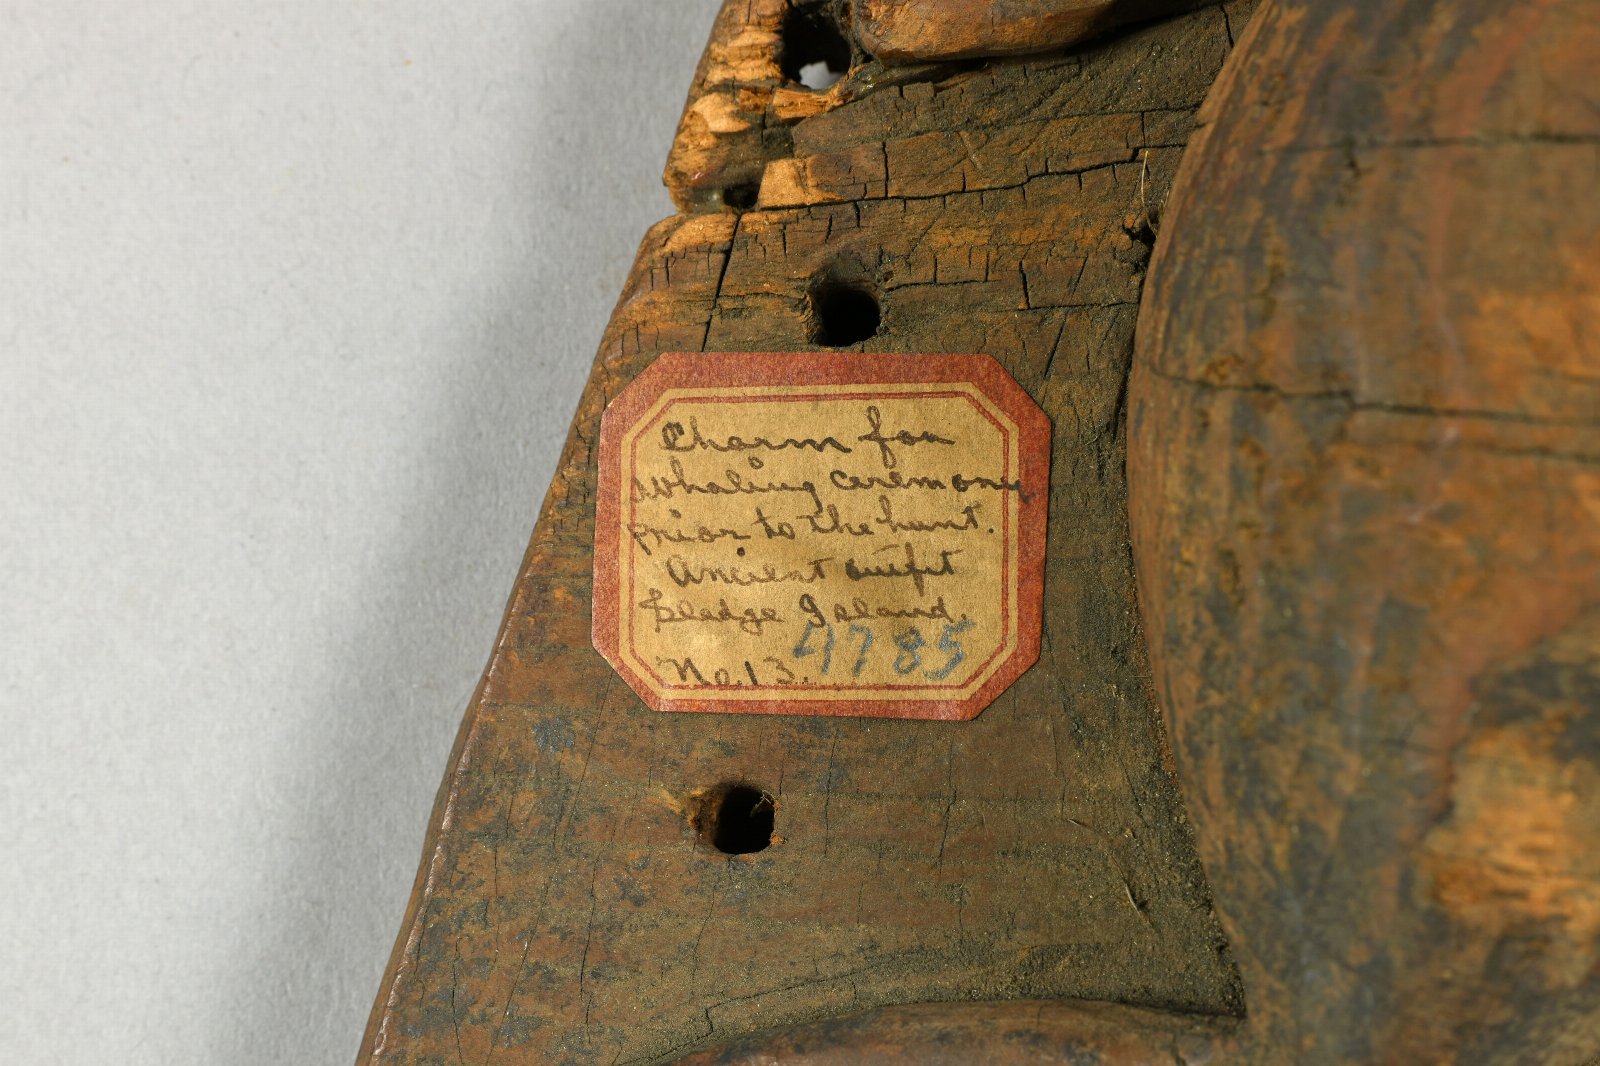 Charm for
whaling ceremony
prior to the hunt.
Ancient outfit
Sledge Island.
No. 13. 4785